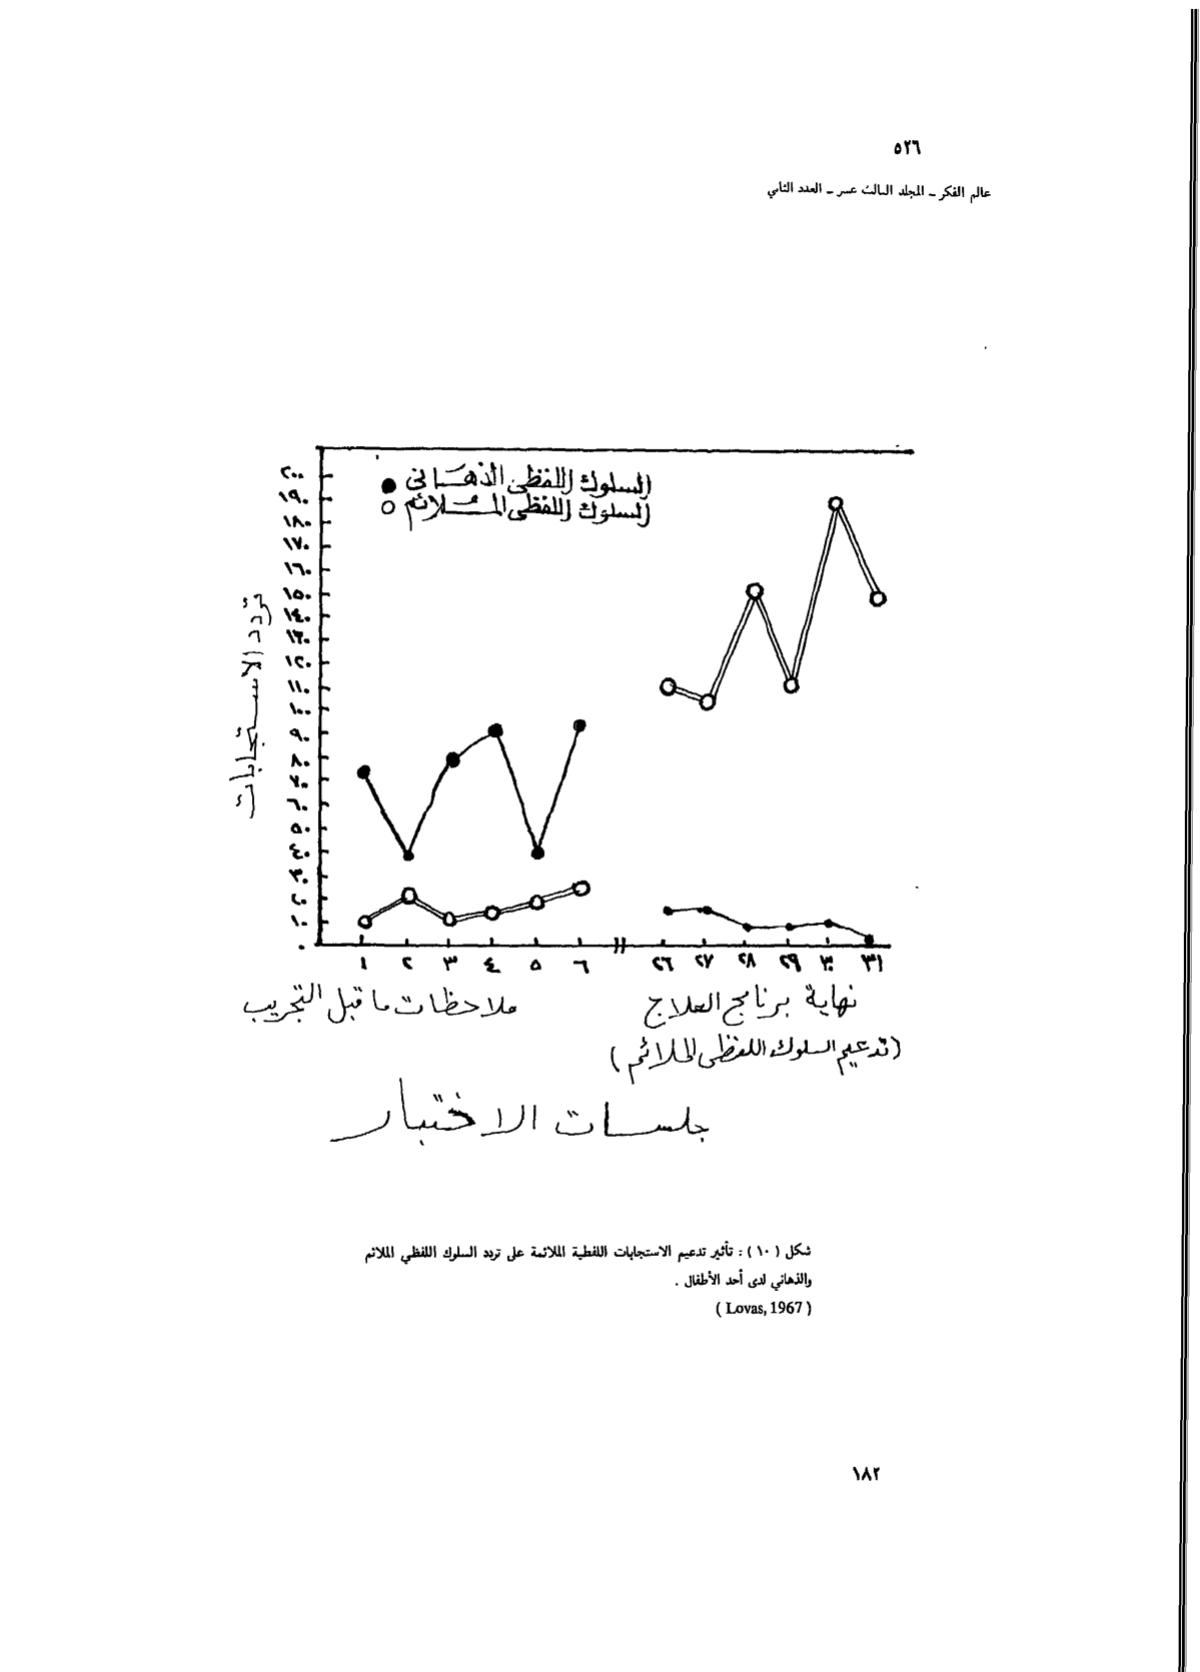 ٥٢٦
عالم الفكر - المجلد الثالث عشر - العدد الثاني
السلوك اللفظى الذهانى
السلوك اللفظى الملائم
٢٠٠
١٩٠
١٨٠
١٧٠
١٦٠
١٥٠
١٤٠
١٣٠
١٢٠
١١٠
١٠٠
٩٠
٨٠
٧٠
٦٠
٥٠
٤٠
٣٠
٢٠
١٠
٠
تردد الاستجابات
١ ٢ ٣ ٤ ٥ ٦ ٢٦ ٢٧ ٢٨ ٢٩ ٣٠ ٣١
ملاحظات ما قبل التجريب
نهاية برنامج العلاج
(تدعيم السلوك اللفظى الملائم)
جلسات الاختبار
شكل ( ١٠ ) : تأثير تدعيم الاستجابات اللفظية الملائمة على تردد السلوك اللفظي الملائم
والذهاني لدى أحد الأطفال .
( Lovas, 1967 )
١٨٢